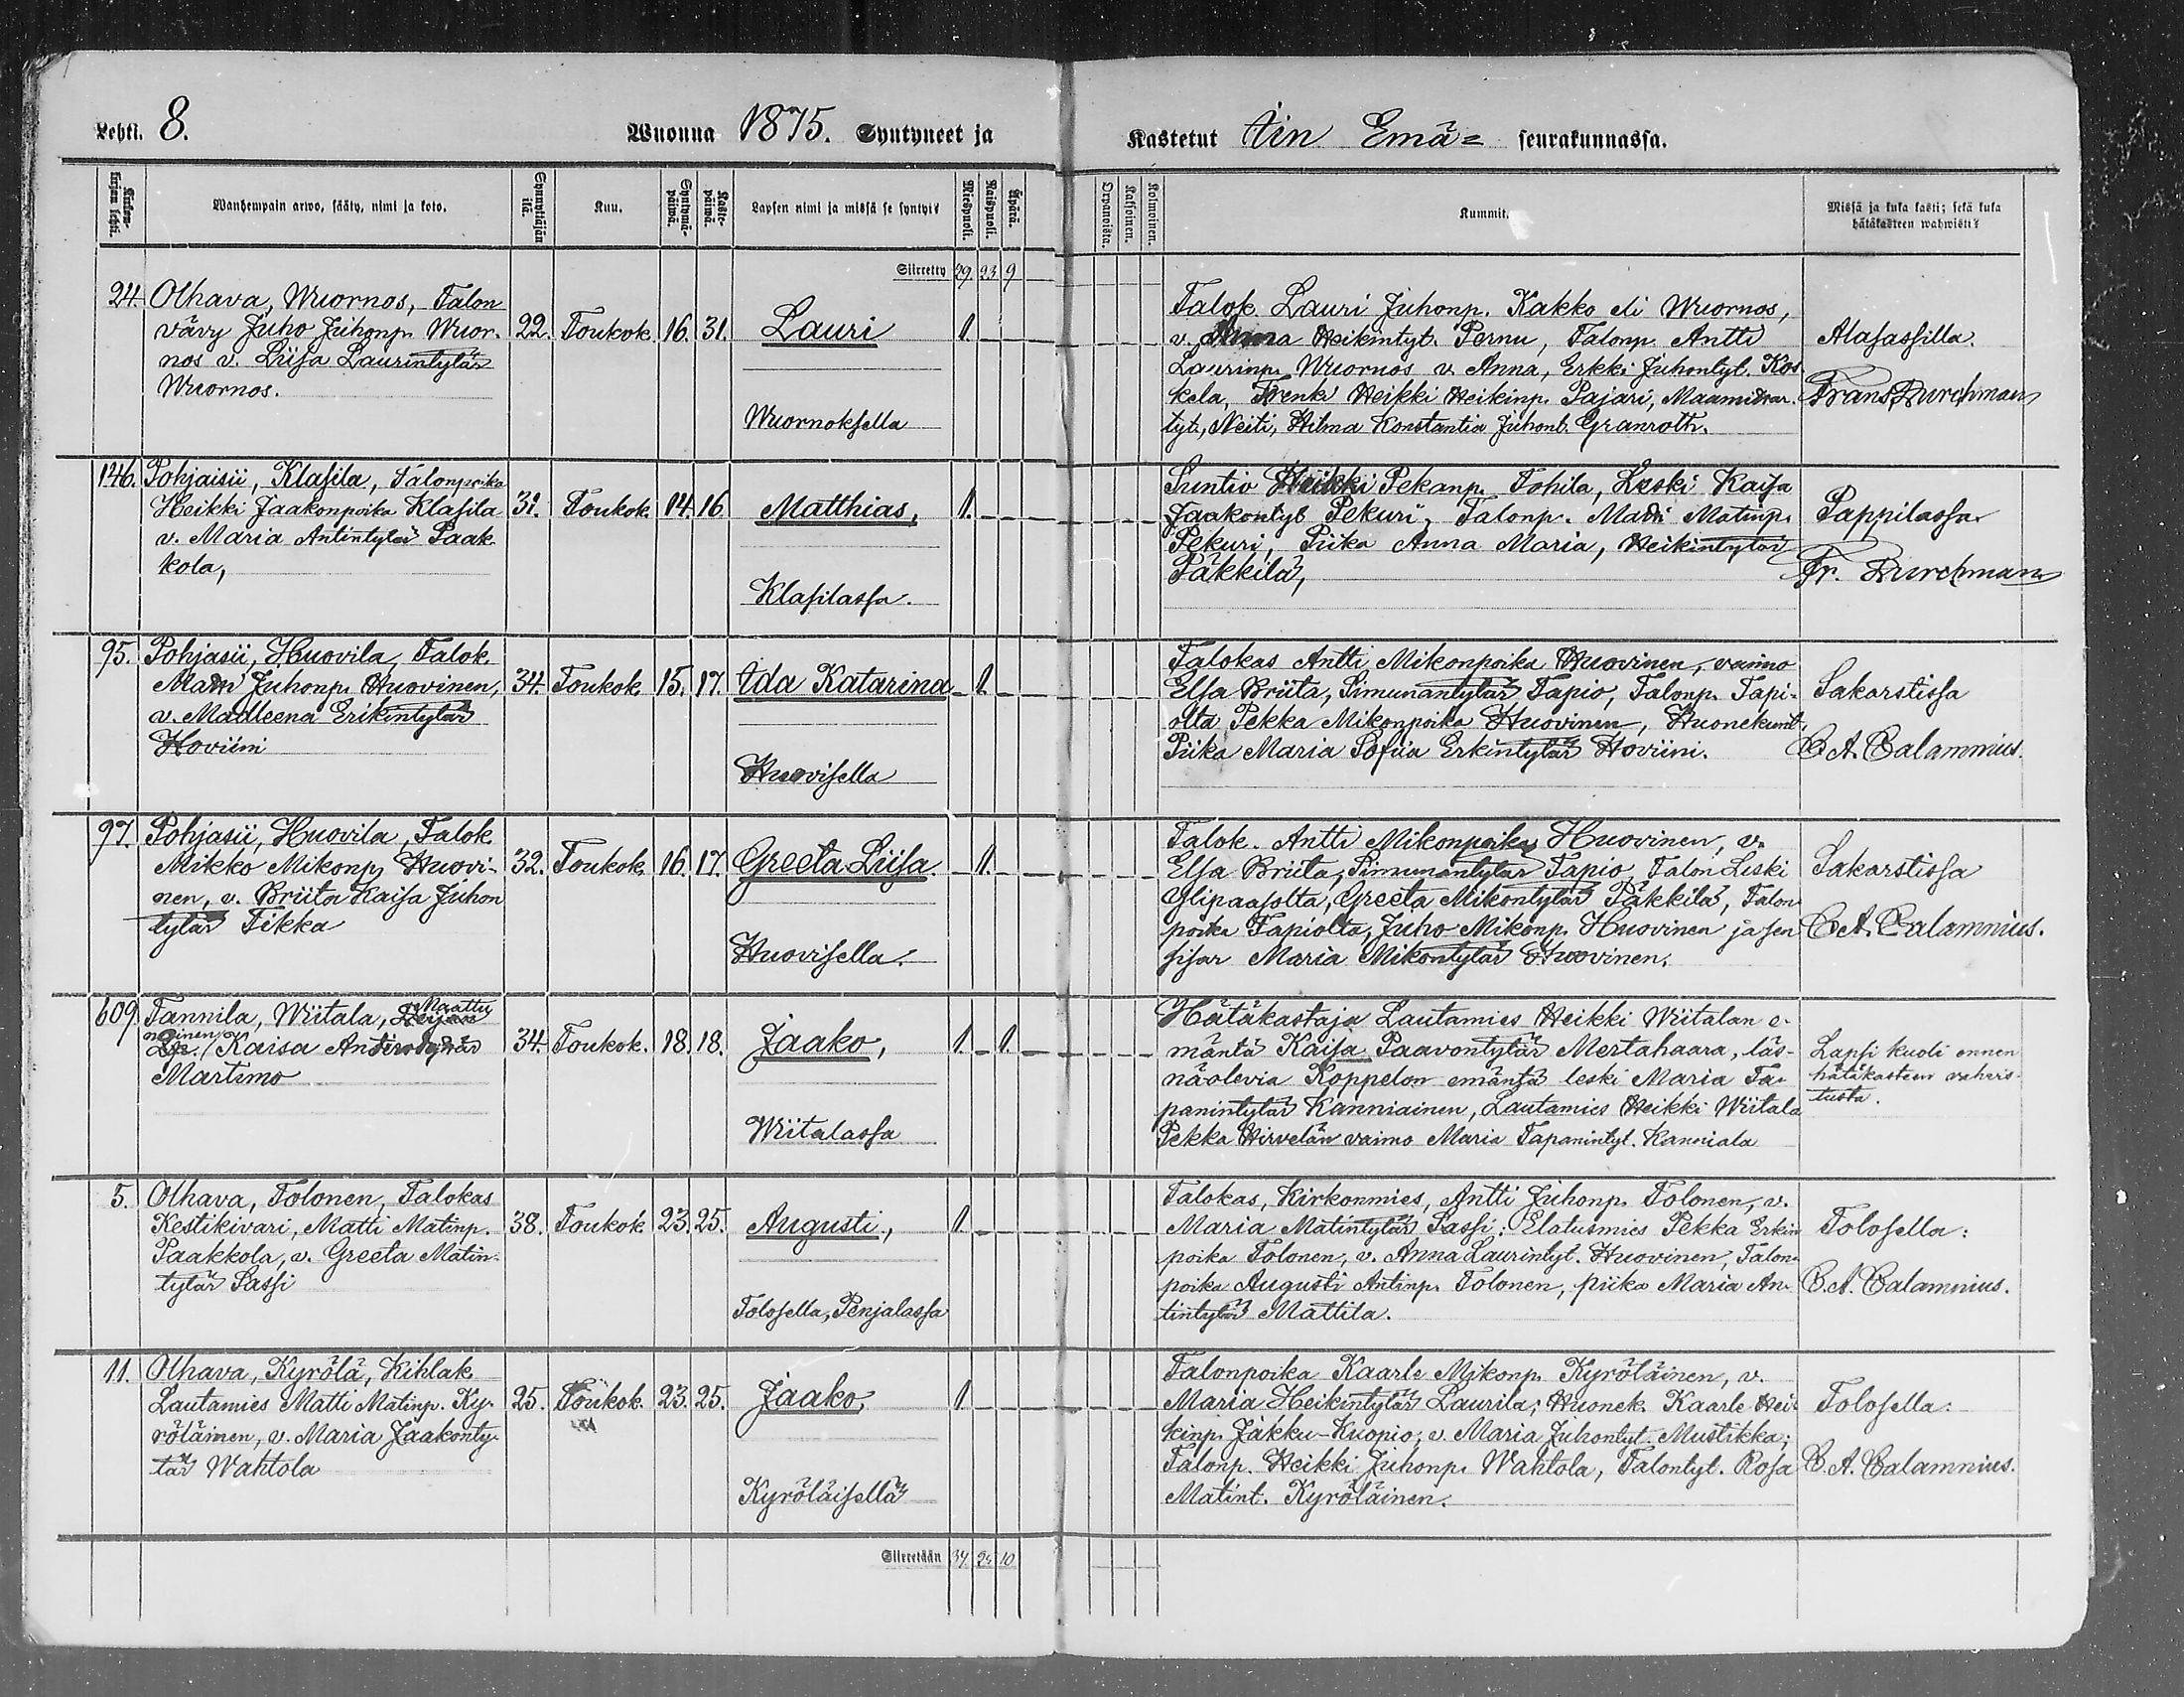 Lehti. 8.
Wuonna 1875. Syntyneet ja
Kastetut Iin Emä= seurakunnassa.
Kirkonkirjan lehti.
Wanhempain arwo, sääty, nimi ja koto.
Synnyttäjän ikä.
Kuu.
Syntymäpäiwä.
Kastepäiwä.
Lapsen nimi ja missä se syntyi?
Miespuoli.
Naispuoli.
Äpärä.
Orpanoista.
Kaksoinen.
Kolmoinen.
Kummit.
Missä ja kuka kasti; sekä kuka
hätäkasteen wahwisti?
Siirretty 29. 23. 9
24. Olhava, Wuornos, Talon
vävy Juho Juhonp. Wuor-
nos v. Liisa Laurintytär
Wuornos.
22. Toukok. 16. 31. Lauri 1.
Wuornoksella
Talok. Lauri Juhonp. Kakko eli Wuornos,
v. Anna Heikintyt. Pernu, Talonp. Antti
Laurinp. Wuornos v. Anna, Erkki Juhontyt. Kos
kela, Trenki Heikki Heikinp. Pajari, Maamittar.
tyt., Neiti, Hilma Konstantia Juhont. Granroth.
Alasassilla.
Frans Durchman
146. Pohjaisii, Klasila, Talonpoika
Heikki Jaakonpoika Klasila
v. Maria Antintytär Paak
kola,
31. Toukok. 14. 16. Matthias, 1.
Klasilassa.
Suntio Heikki Pekanp. Tohila, Leski Kaisa
Jaakontyt Pekuri, Talonp. Matti Matinp.
Pekuri, Piika Anna Maria, Heikintytär
Päkkilä,
Pappilassa.
Fr. Durchman
95. Pohjasii, Huovila, Talok.
Matti Juhonp. Huovinen,
v. Madleena Erikintytär
Hoviini
34. Toukok. 15. 17. Ida Katarina 1.
Huovisella
Talokas Antti Mikonpoika Huovinen, vaimo
Elsa Briita, Simunantytär Tapio, Talonp. Tapi-
olta Pekka Mikonpoika Huovinen, Huonekunt,
Piika Maria Sofiia Erkintytär Hoviini.
Sakarstissa
C.A. Calamnius.
97. Pohjasii, Huovila, Talok
Mikko Mikonp. Huovi-
nen, v. Briita Kaisa Juhon
tytär Tikka
32. Toukok. 16. 17. Greeta Liisa. 1.
Huovisella.
Talok. Antti Mikonpoika Huovinen, v.
Elsa Briita, Simunantytär Tapio, Talon Leski
Ylipaasolta, Greeta Mikontytär Päkkilä, Talon
poika Tapiolta, Juho Mikonp. Huovinen ja sen
sisar Maria Mikontytär Huovinen.
Sakarstissa
C.A. Calamnius.
609. Tannila, Wiitala, Maattu
nainen
Kaisa Antintytär
Martimo
34. Toukok. 18. 18. Jaako, 1. 1.
Wiitalassa
Hätäkastaja Lautamies Heikki Wiitalan e-
mäntä Kaisa Paavontytär Mertahaara, läs-
näolevia Koppelon emäntä leski Maria Ta-
panintytär Kanniainen, Lautamies Heikki Wiitala
Pekka Hirvelän vaimo Maria Tapanintyt. Kanniala
Lapsi kuoli ennen
hätäkasteen vahvis-
tusta.
5. Olhava, Tolonen, Talokas
Kestikivari, Matti Matinp.
Paakkola, v. Greeta Matin-
tytär Sassi
38. Toukok. 23. 25. Augusti, 1.
Tolosella, Penjalassa
Talokas, Kirkonmies, Antti Juhonp. Tolonen, v.
Maria Matintytär Sassi: Elatusmies Pekka Erkin
poika Tolonen, v. Anna Laurintyt. Huovinen, Talon-
poika Augusti Antinp. Tolonen, piika Maria An-
tintytär Mattila.
Tolosella:
C.A. Calamnius.
11. Olhava, Kyrölä, Kihlak
Lautamies Matti Matinp. Ky-
röläinen, v. Maria Jaakonty-
tär Wahtola
25. Toukok. 23. 25. Jaako, 1.
Kyröläisellä
Talonpoika Kaarle Mikonp. Kyröläinen, v.
Maria Heikintytär Laurila; Huonek. Kaarle Hei-
kinp. Jäkku-Kuopio, v. Maria Juhontyt. Mustikka;
Talonp. Heikki Juhonp. Wahtola, Talontyt. Rosa
Matint. Kyröläinen.
Tolosella:
C.A. Calamnius.
Siirretään 34. 25 10